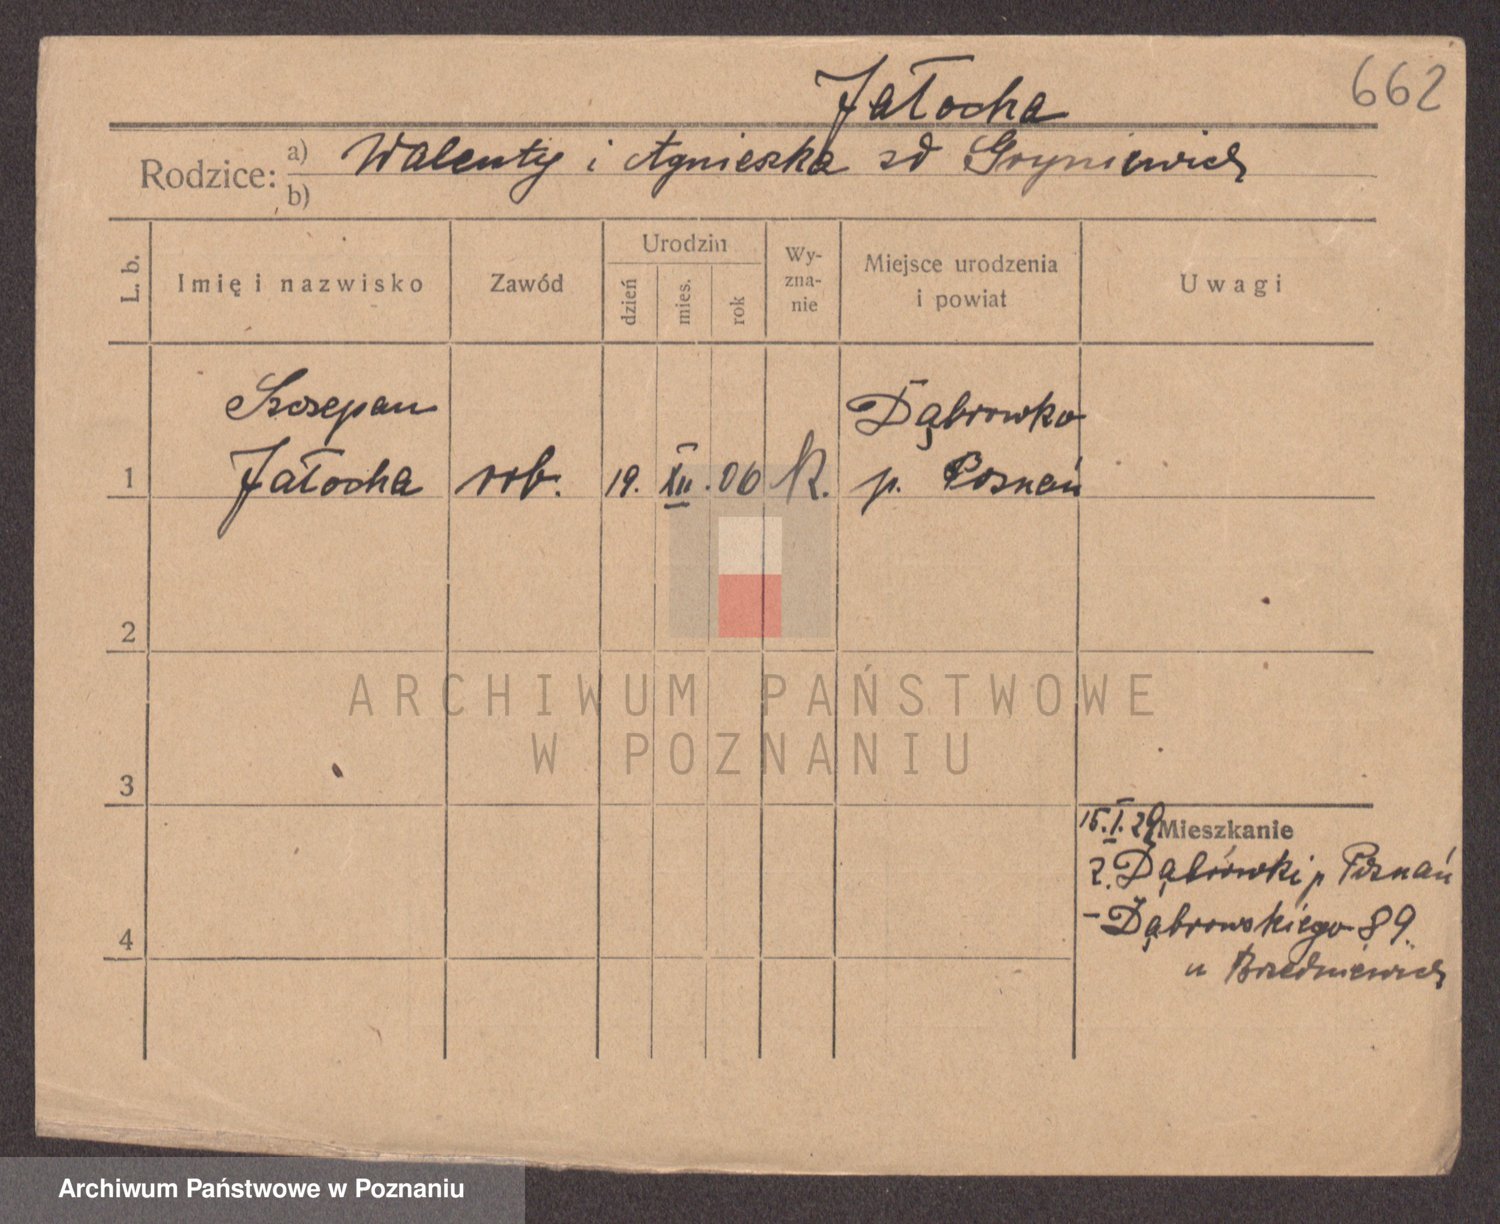 662
Jałocha
Rodzice: a) Walenty i Agnieszka zd Gryniewicz
b)
L. b. Imię i nazwisko Zawód Urodzin dzień mies. rok Wy-zna-nie Miejsce urodzenia i powiat Uwagi
Szczepan Dąbrówka
1 Jałocha rob. 19. XII. 06 k. p. Poznań
2
ARCHIWUM PAŃSTWOWE
W POZNANIU
3
15.I.29 Mieszkanie
z. Dąbrówki p Poznań
- Dąbrowskiego 89.
4
u
Archiwum Państwowe w Poznaniu